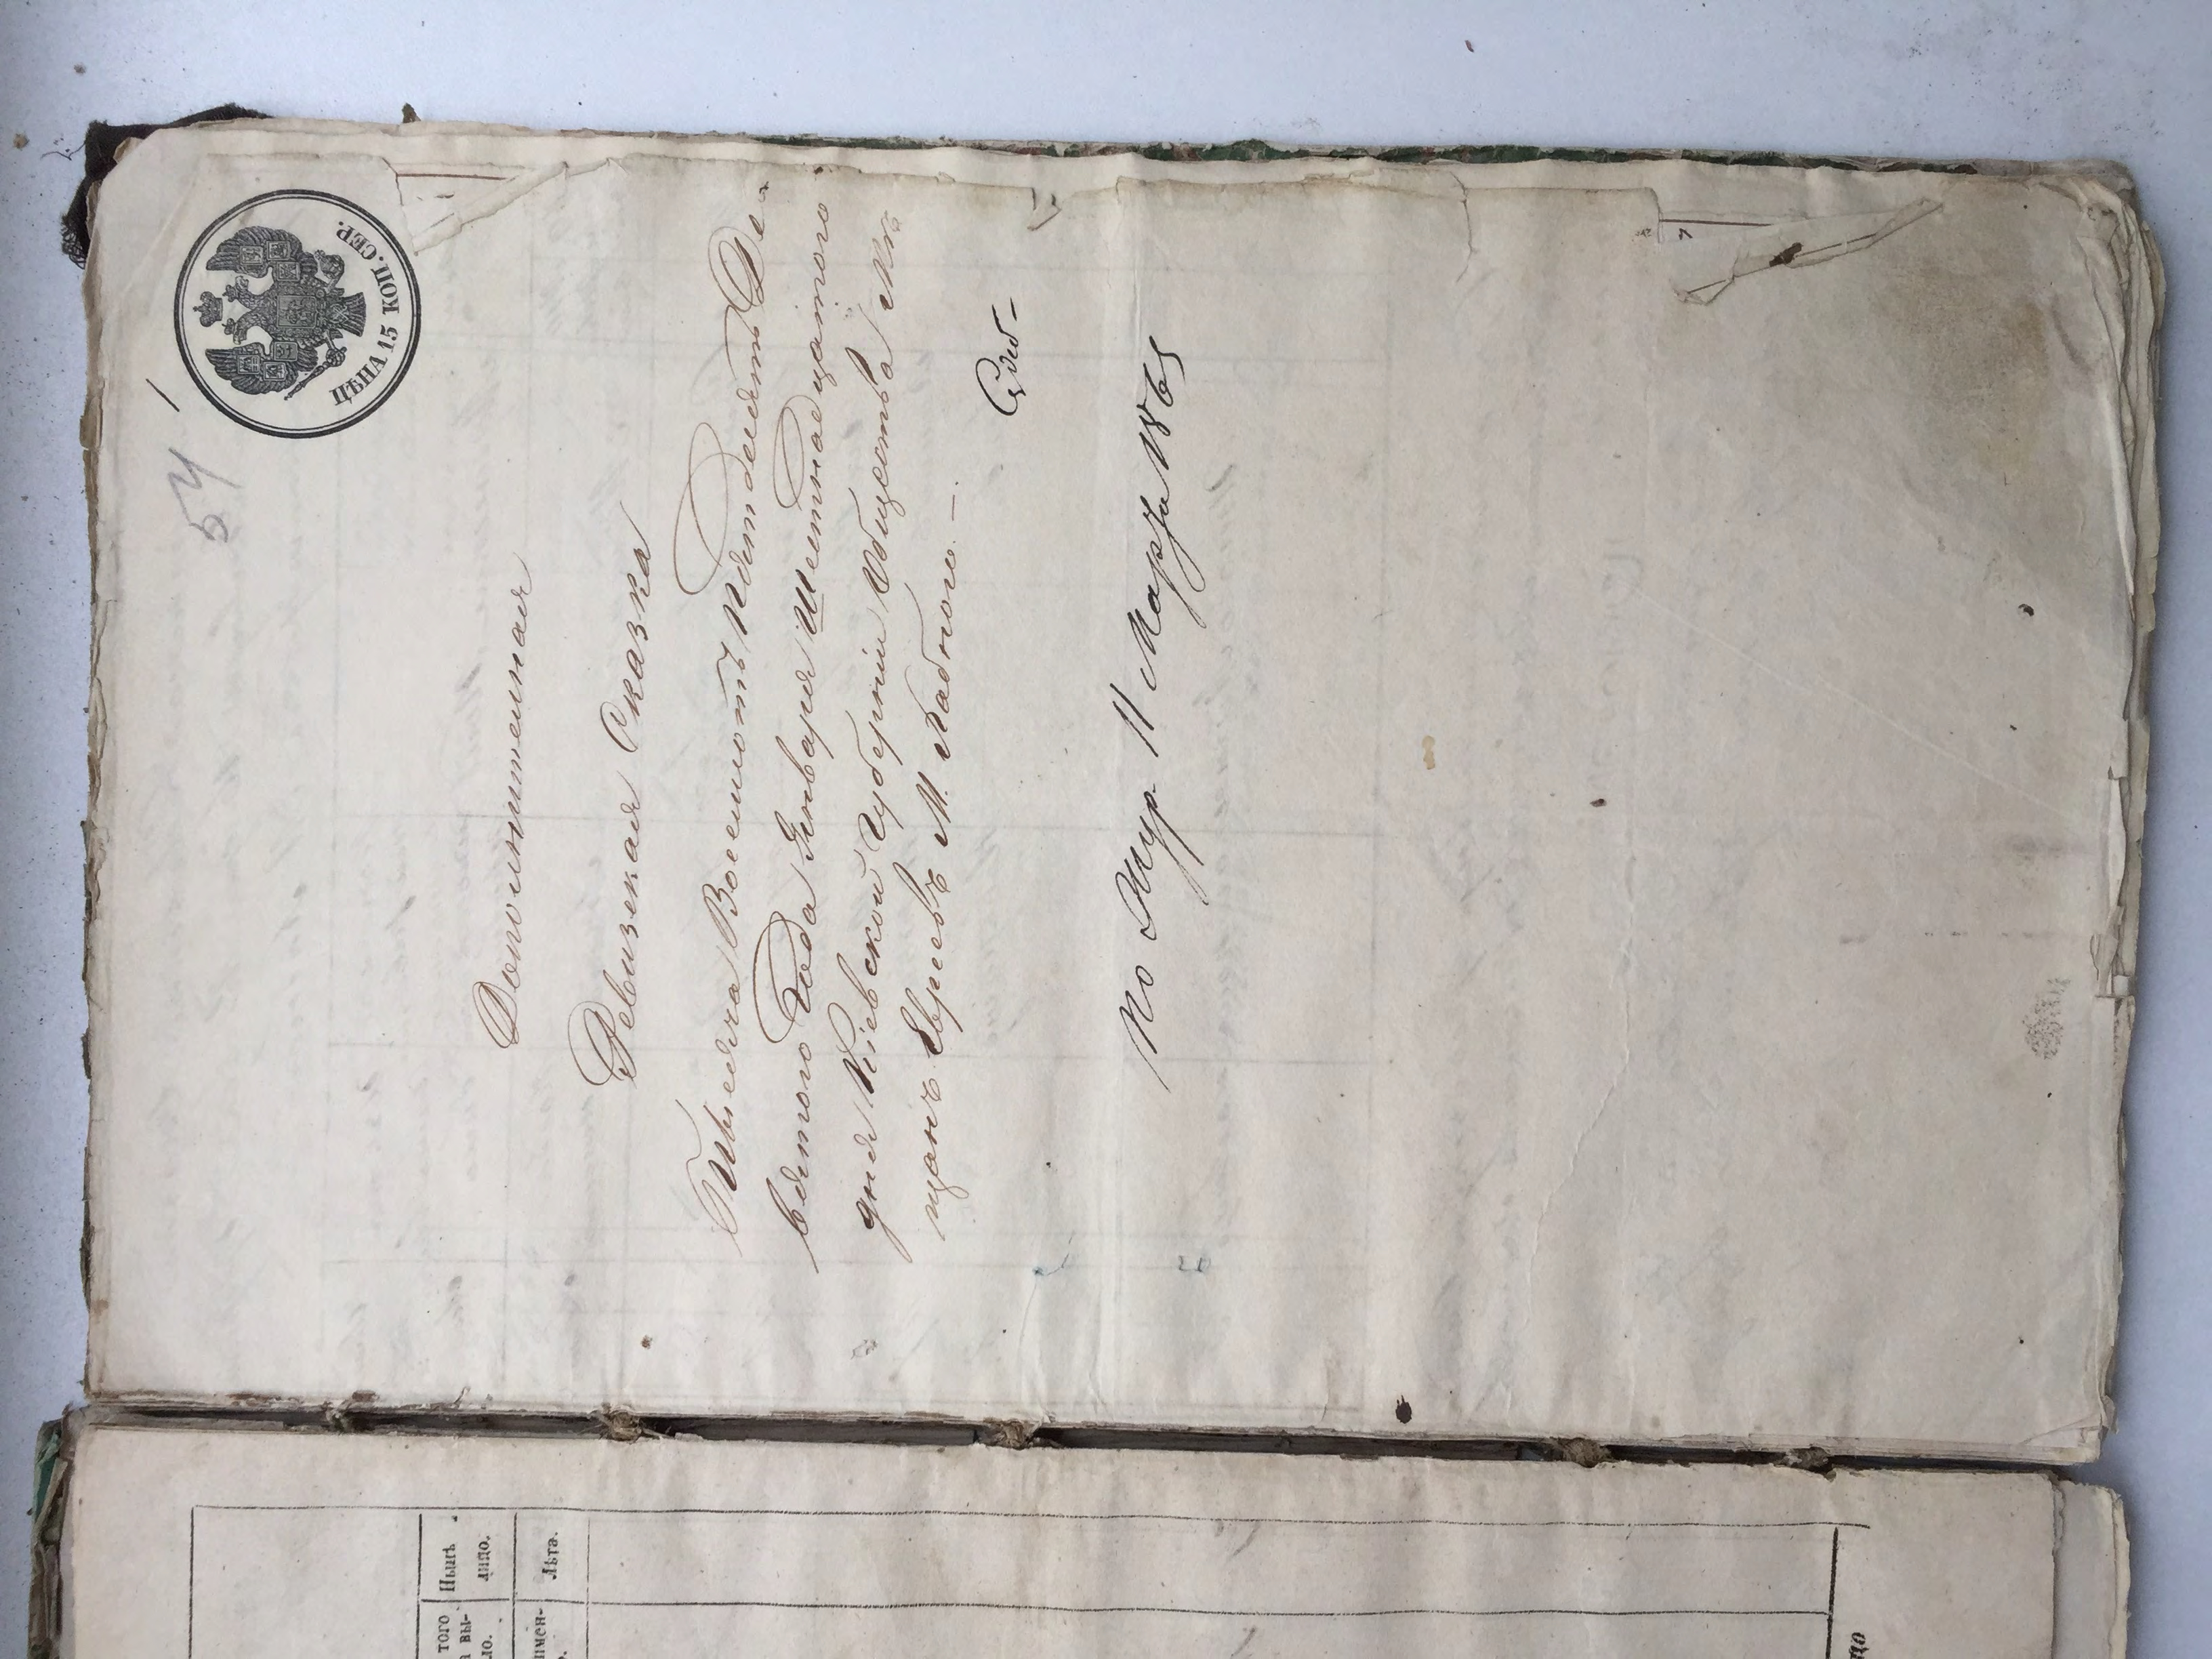 54
ЦѢНА 15 КОП. СЕР.
Дополнительная
Ревизская Сказка
Тысяча Восемьсотъ Пятьдесятъ Де-
вятого Года Января Шестнадцатого
дня Кіевской Губерніи Общества Мѣ
щанъ Евреевъ М. Ладного.—
По Жур. 11 Марта 1865
того
а вы-
ло.
Нынѣ
лицо.
Лѣта.